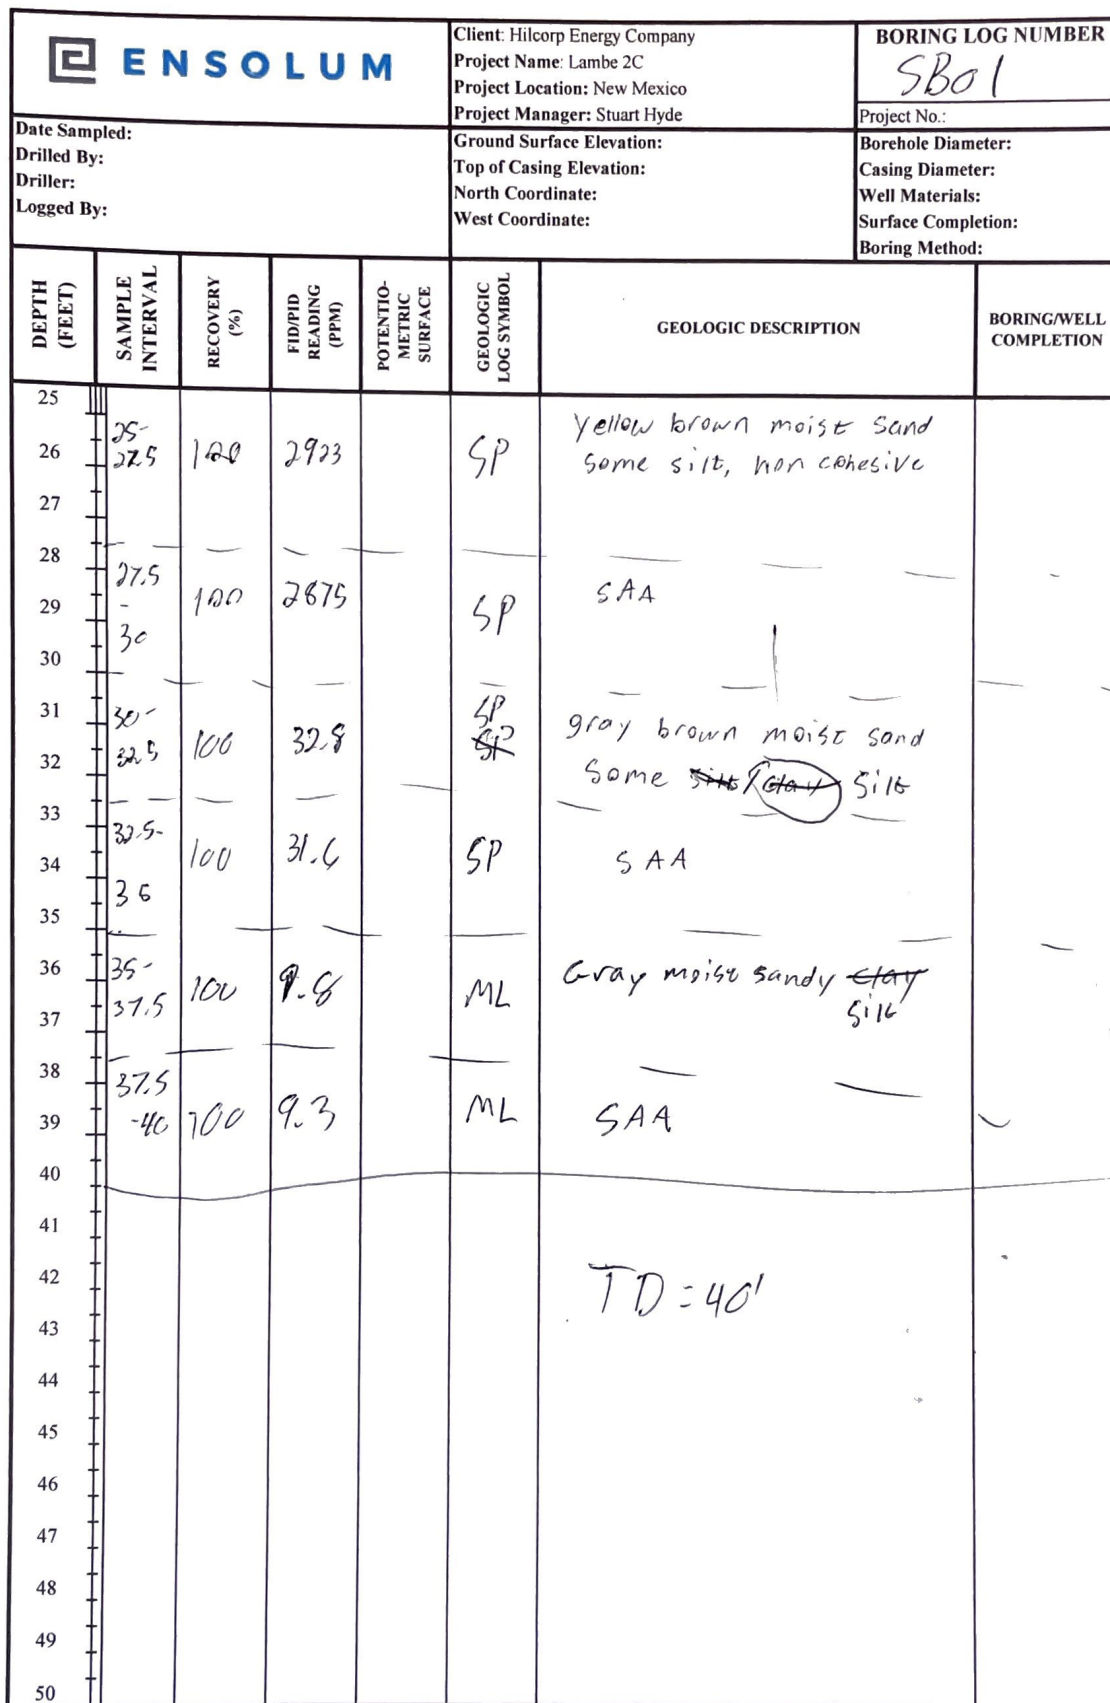 ENSOLUM
Client: Hilcorp Energy Company
Project Name: Lambe 2C
Project Location: New Mexico
Project Manager: Stuart Hyde
BORING LOG NUMBER
SB01
Project No.:
Date Sampled:
Drilled By:
Driller:
Logged By:
Ground Surface Elevation:
Top of Casing Elevation:
North Coordinate:
West Coordinate:
Borehole Diameter:
Casing Diameter:
Well Materials:
Surface Completion:
Boring Method:
DEPTH
(FEET)
SAMPLE
INTERVAL
RECOVERY
(%)
FID/PID
READING
(PPM)
POTENTIO-
METRIC
SURFACE
GEOLOGIC
LOG SYMBOL
GEOLOGIC DESCRIPTION
BORING/WELL
COMPLETION
25
25-
yellow brown moist sand
26
27.5
100
2923
SP
some silt, non cohesive
27
28
27.5
-
30
100
2875
SP
SAA
29
30
31
30-
32.5
100
32.8
SP
SP
gray brown moist sand
32
some silt clay silt
33
32.5-
100
SP
SAA
34
35
36
35-
37.5
100
ML
Gray moist sandy clay
silt
37
38
37.5
-40
100
9.3
ML
SAA
39
40
41
42
TD = 40'
43
44
45
46
47
48
49
50